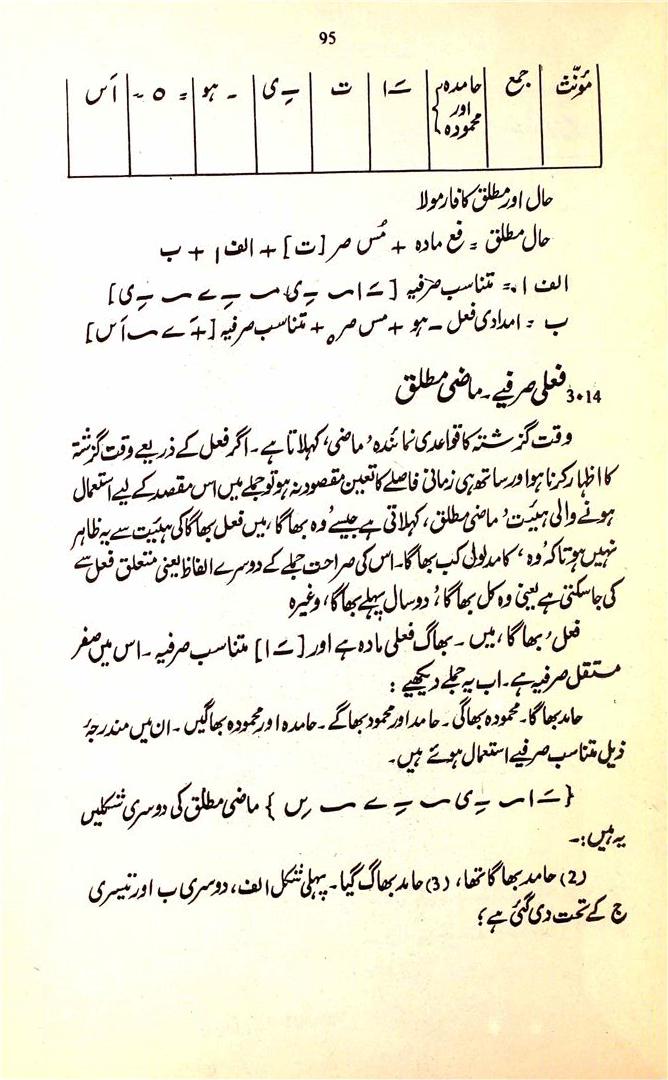 95
مؤنّث | جمع | حامدہ اور محمودہ } | ـَ ا | ت | ـِ ی | ۔ ہو | = ٥ ~ | اَس
حال اور مطلق کا فارمولا
حال مطلق = فع مادہ + مُس صر [ت] + الف ا + ب
الف ا .= متناسب صرفیہ [ـَ ا ~ ـِ ی ~ ـِ ے ~ ـِ ی]
ب = امدادی فعل ۔ ہو + مس صر ٥ + متناسب صرفیہ [+ َے ~ اَس]
3.14 فعلی صرفیے۔ ماضی مطلق
وقت گزشتہ کا قواعدی نمائندہ ’ماضی‘ کہلاتا ہے۔ اگر فعل کے ذریعے وقت گزشتہ
کا اظہار کرنا ہو اور ساتھ ہی زمانی فاصلے کا تعین مقصود نہ ہو تو جملے میں اس مقصد کے لیے استعمال
ہونے والی ہیئیت ’ماضی مطلق‘ کہلاتی ہے جیسے ’وہ بھاگا‘ میں فعل بھاگا کی ہیئیت سے یہ ظاہر
نہیں ہوتا کہ ’وہ‘ کا مدلول کب بھاگا۔ اس کی صراحت جملے کے دوسرے الفاظ یعنی متعلق فعل سے
کی جا سکتی ہے یعنی وہ کل بھاگا، ’دو سال پہلے بھاگا‘ وغیرہ
فعل ’بھاگا‘ میں ۔ بھاگ فعلی مادہ ہے اور [ـَ ا] متناسب صرفیہ ۔ اس میں صفر
مستقل صرفیہ ہے۔ اب یہ جملے دیکھیے :
حامد بھاگا۔ محمودہ بھاگی۔ حامد اور محمود بھاگے۔ حامدہ اور محمودہ بھاگیں۔ ان میں مندرجۂ
ذیل متناسب صرفیے استعمال ہوئے ہیں۔
{ـَ ا ~ ـِ ی ~ ـِ ے ~ ـِ س} ماضی مطلق کی دوسری شکلیں
یہ ہیں:۔
(2) حامد بھاگا تھا، (3) حامد بھاگ گیا۔ پہلی شکل الف، دوسری ب اور تیسری
ج کے تحت دی گئی ہے؛